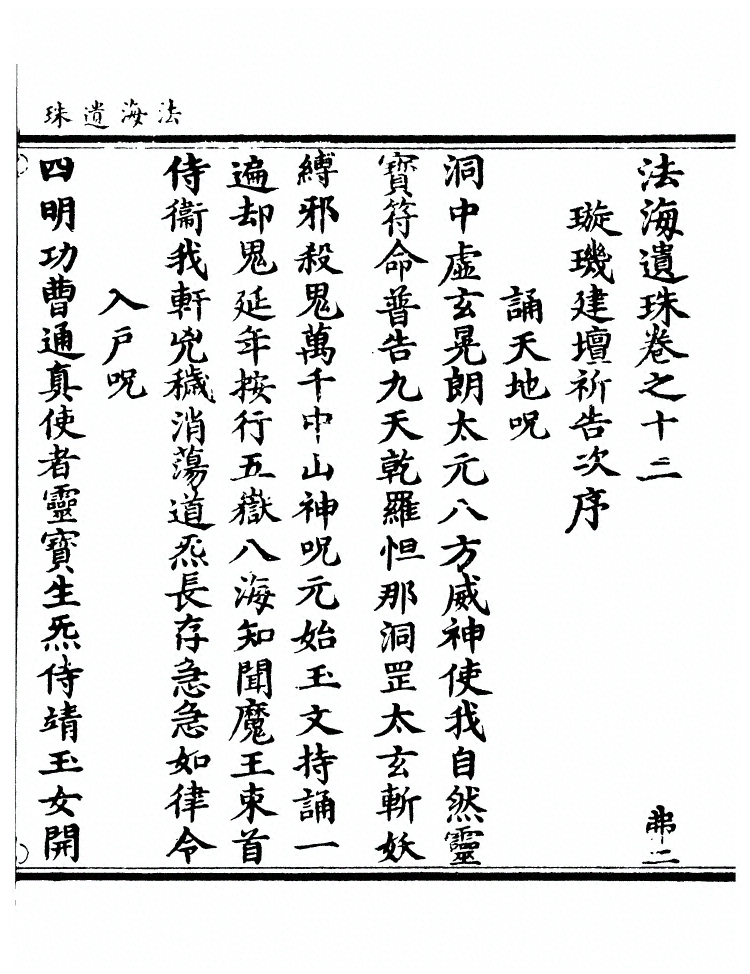 法海遺珠
法海遺珠卷之十三
弗二
璇璣建壇祈告次序
誦天地呪
洞中虛玄晃朗太元八方威神使我自然靈
寳符命普告九天乾羅怛那洞罡太玄斬妖
縛邪殺鬼萬千中山神呪元始玉文持誦一
遍却鬼延年按行五嶽八海知聞魔王束首
侍衞我軒兇穢消蕩道炁長存急急如律令
入戸呪
四明功曹通真使者靈寳生炁侍靖玉女開